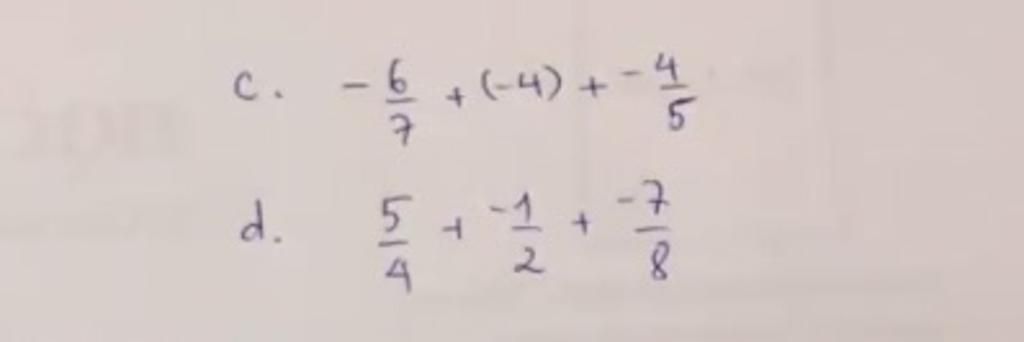 c. -6/7 + (-4) + -4/5
d. 5/4 + -1/2 + -7/8